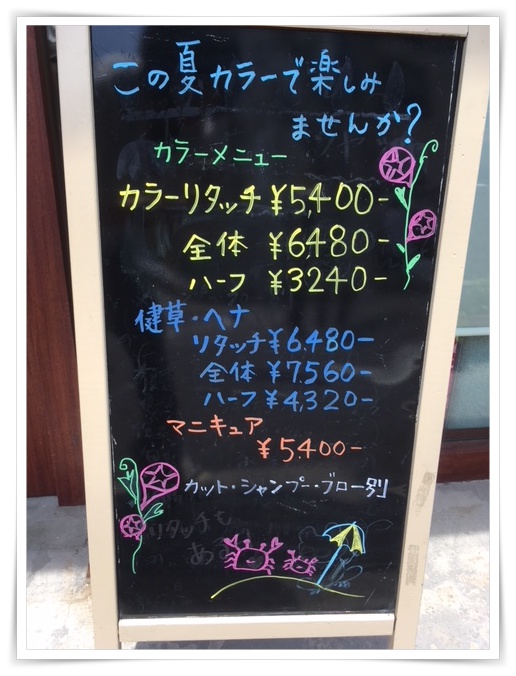 この夏カラーで楽しみ
ませんか?
カラーメニュー
カラーリタッチ ¥5,400-
全体 ¥6,480-
ハーフ ¥3240-
健草・ヘナ
リタッチ ¥6,480-
全体 ¥7,560-
ハーフ ¥4,320-
マニキュア
¥5400-
カット・シャンプー・ブロー別
リタッチも